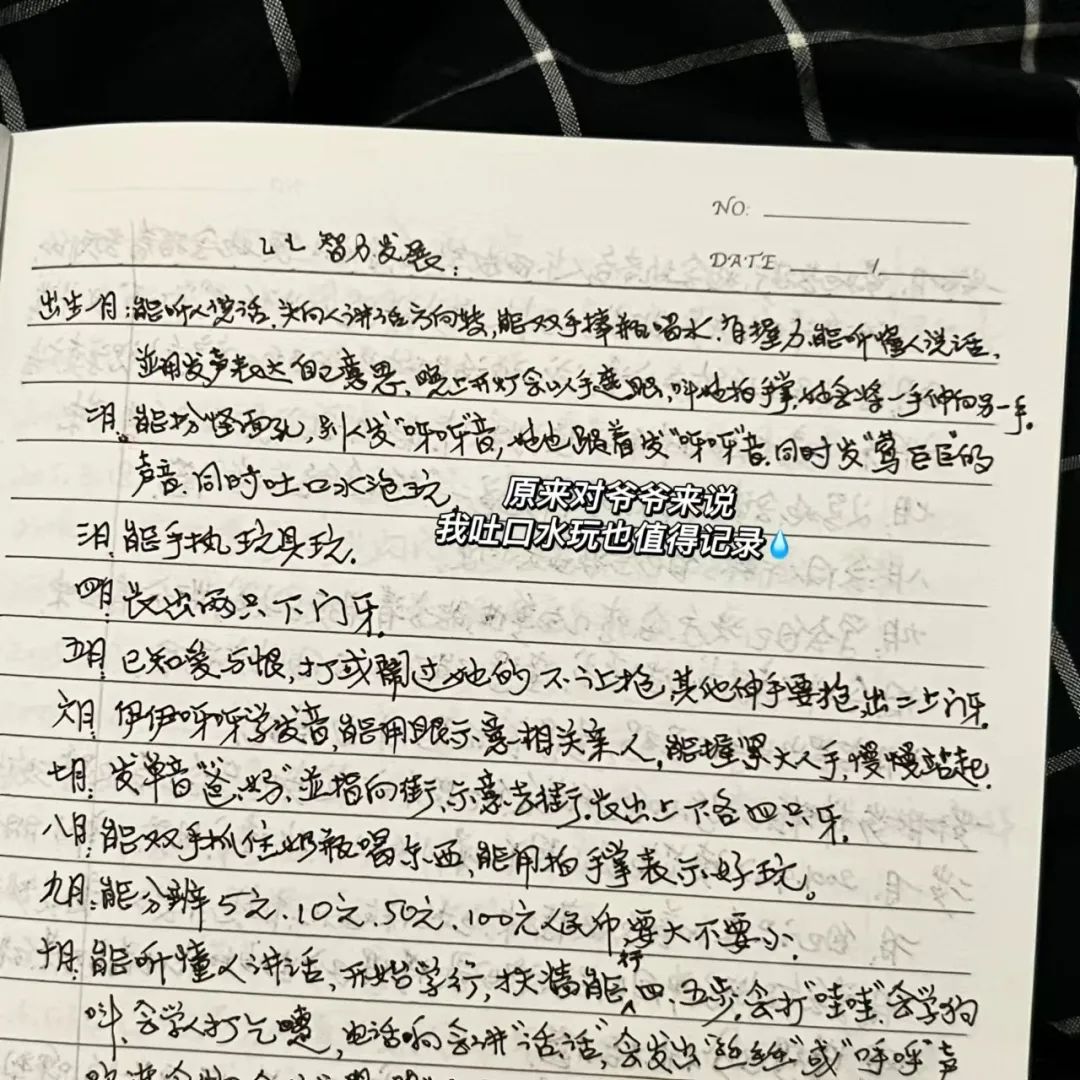 NO:
DATE
智力发展:
出生月:能听人说话,头向人讲话方向转,能双手捧瓶喝水.有握力,能听懂人说话,
並用发声表达自己意思,晚上开灯会以手遮眼,叫她拍手掌,她会将一手伸向另一手.
二月:能扮怪面孔,别人发“呀呀”音,她也跟着发“呀呀”音.同时发“莺巨巨”的
声音.同时吐口水泡玩.
原来对爷爷来说
我吐口水玩也值得记录💧
三月:能手执玩具玩.
四月:长出两只下门牙.
五月:已知爱与恨,打或闹过她的不让抱,其他伸手要抱,出二上门牙.
六月:伊伊呀呀学发音,能用眼示意相关亲人,能握紧大人手,慢慢站起.
七月:发单音“爸、妈”,並指向街,示意去街.长出上下各四只牙.
八月:能双手抓住奶瓶喝东西,能用拍手掌表示好玩。
九月:能分辨5元、10元、50元、100元人民币,要大不要小.
十月:能听懂人讲话,开始学行,扶墙能行四、五步,会打“哇哇”,会学狗
叫,会学人打乞嚏,电话响会讲“话话”,会发出“丝丝”或“呼呼”声